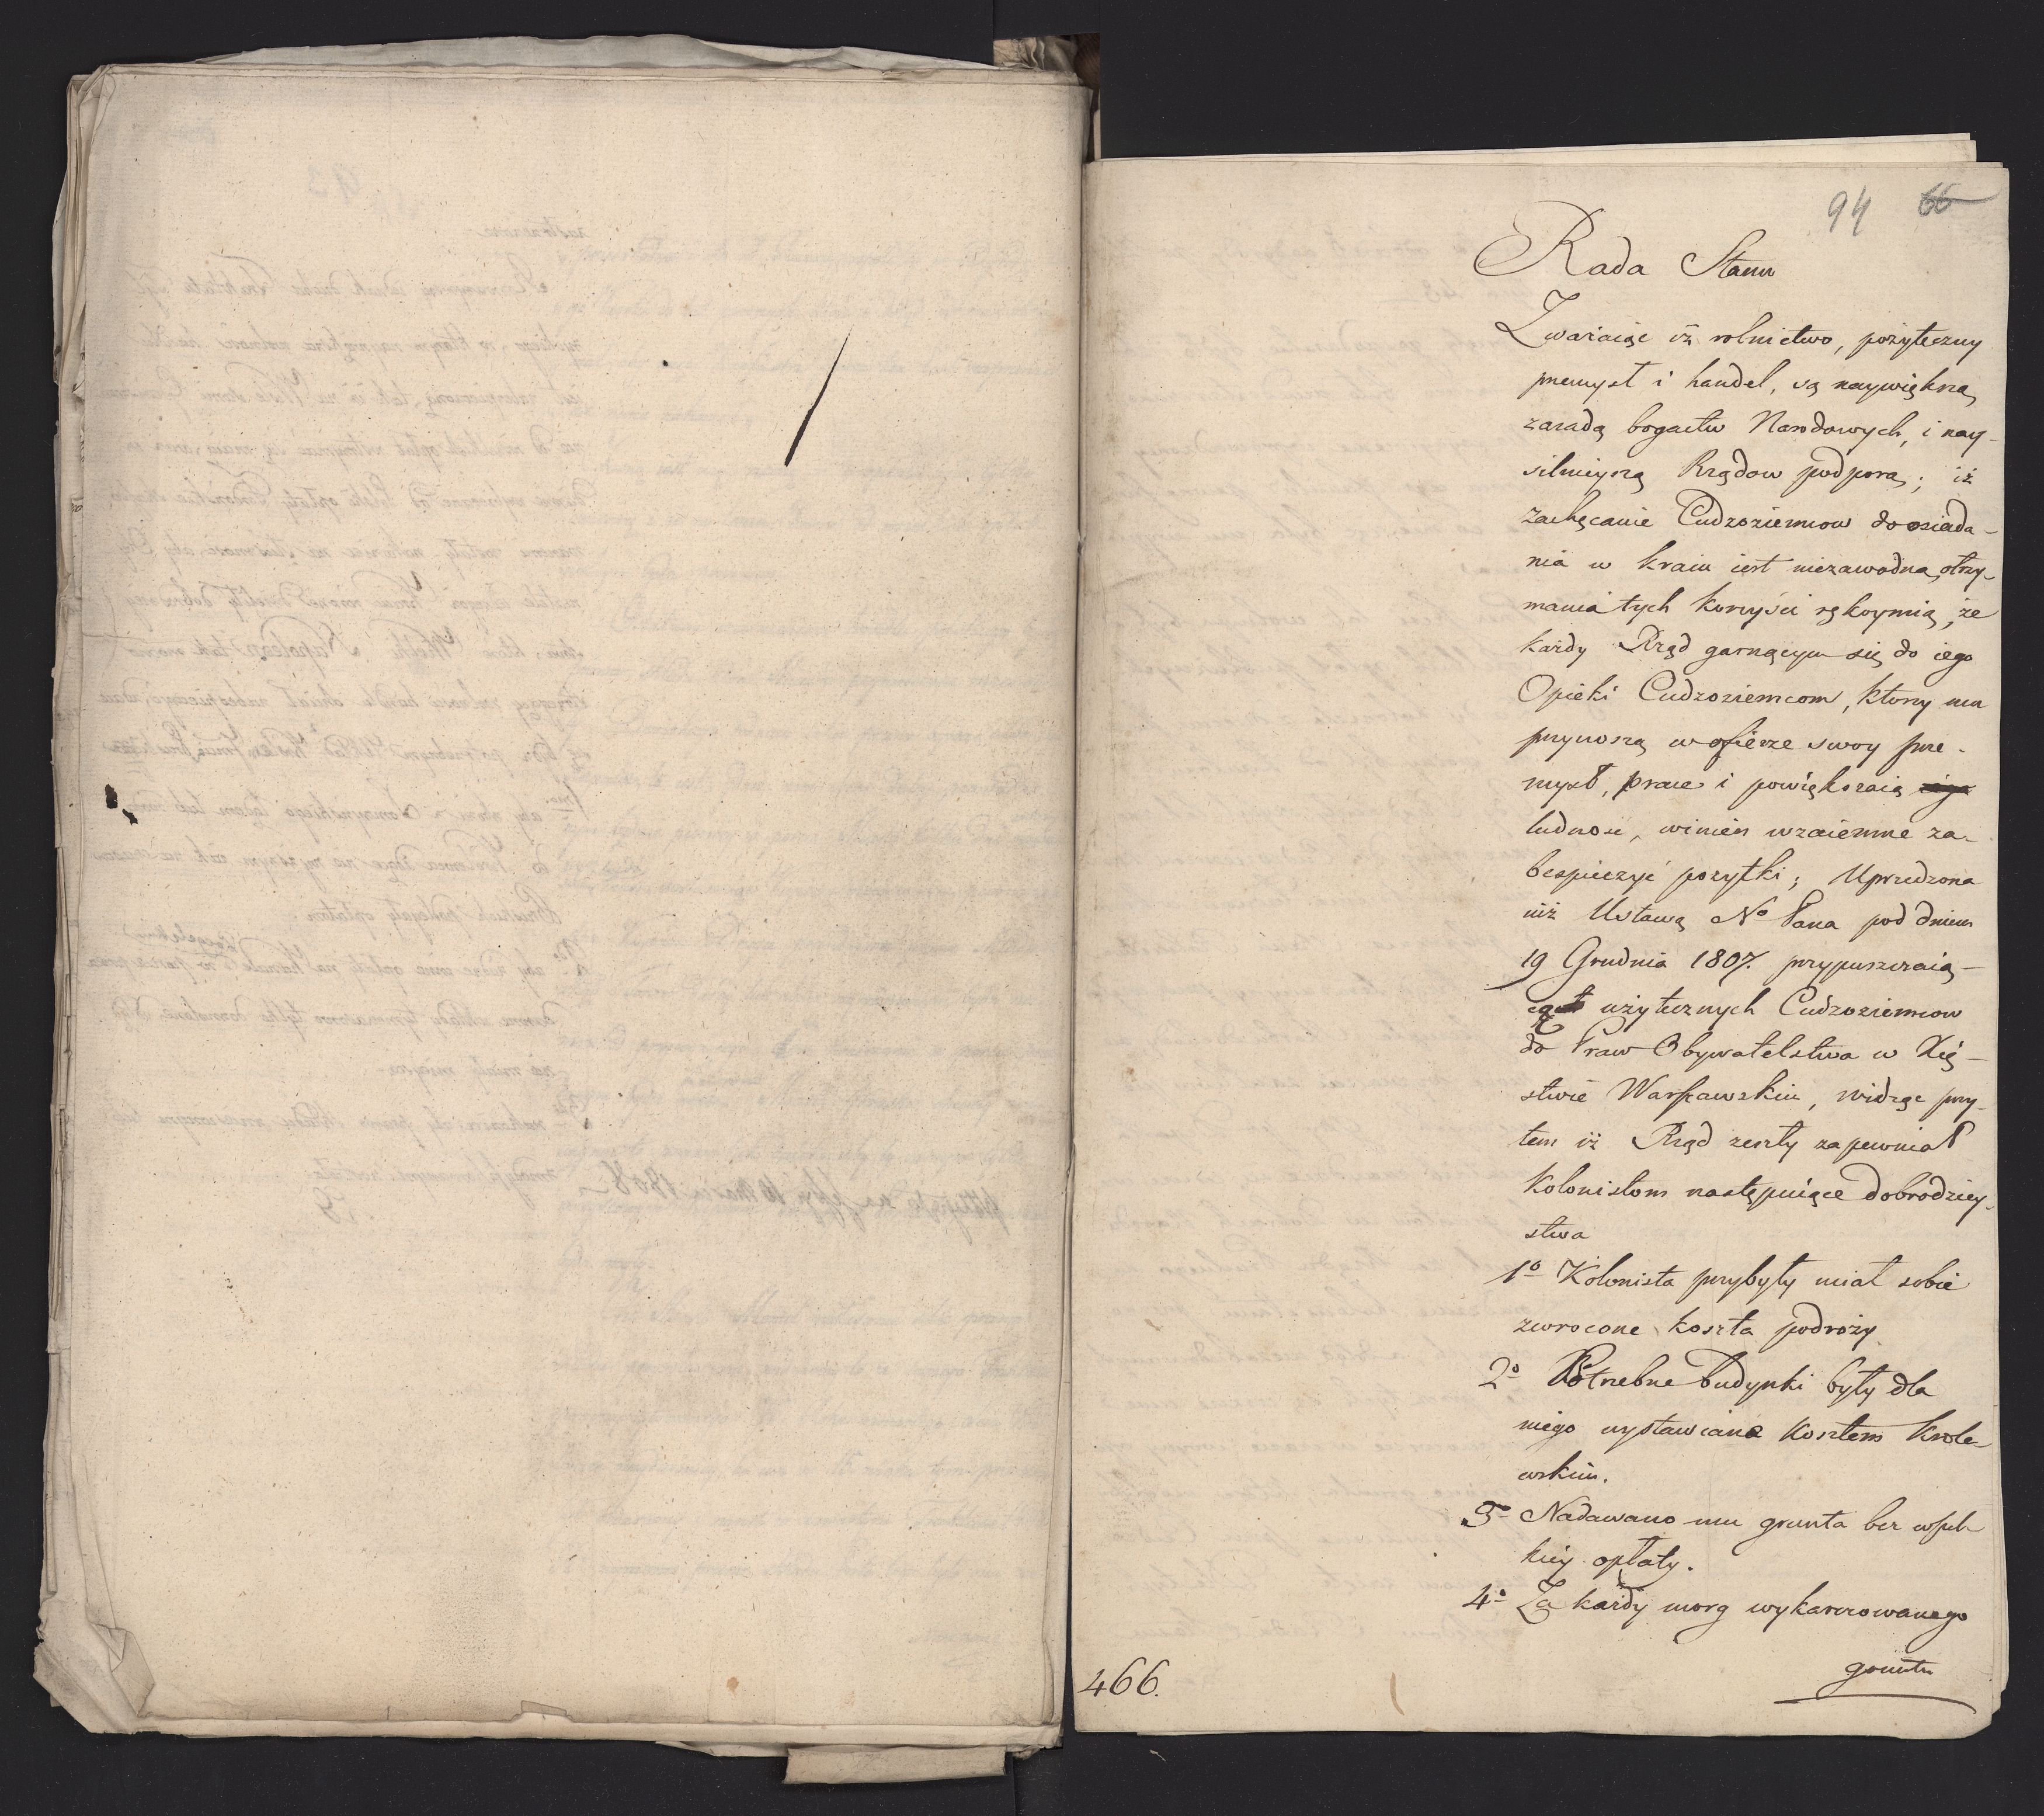 94 66
Rada Stanu
Zważaiąc iż rolnictwo, pożyteczny
przemysł i handel, są naywiększą
zasadą bogactw Narodowych, i nay-
silnieyszą Rządow podporą; iż
zachęcanie Cudzoziemcow do osiada-
nia w kraiu iest niezawodną otrzy-
mania tych korzyści rękoymią, że
każdy Rząd garnącym się do iego
Opieki Cudzoziemcom, ktorzy mu
przynoszą w ofierze swoy prze-
mysł, prace i powiększaią iego
ludność, winien wzaiemne za-
bespieczyć pożytki; Uprzedzona
iuż Ustawą No Pana pod dniem
19 Grudnia 1807. przypuszczaią-
cą użytecznych Cudzoziemcow
do Praw Obywatelstwa w Xię-
stwie Warszawskim, widząc przy-
tem iż Rząd zeszły zapewniał
Kolonistom następuiące dobrodziey-
stwa
1o Kolonista przybyły miał sobie
zwrocone koszta podroży
2o Potrzebne budynki były dla
niego wystawiane kosztem Krole-
wskim.
3o Nadawano mu grunta bez wszel-
kiey opłaty.
4o Za każdy morg wykarczowanego
gruntu
466.